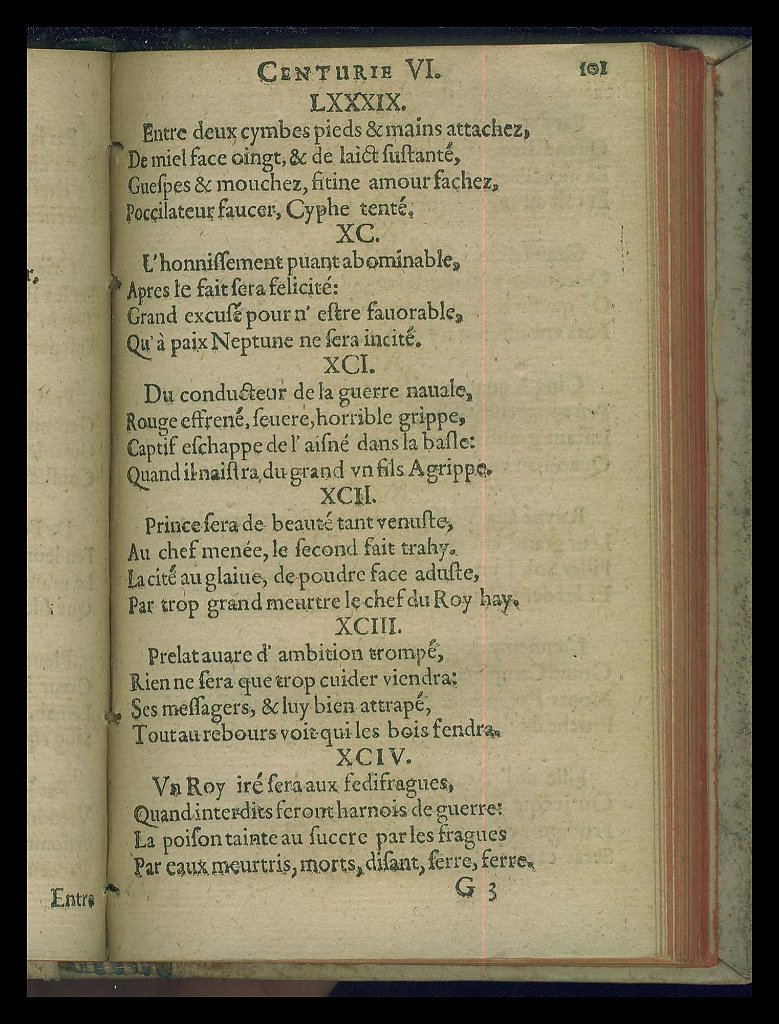 r,
Entre
CENTURIE VI. 101
LXXXIX.
Entre deux cymbes pieds & mains attachez,
De miel face oingt, & de laict ſuſtanté,
Gueſpes & mouchez, fitine amour fachez,
Poccilateur faucer, Cyphe tenté.
XC.
L'honniſſement puant abominable,
Apres le fait ſera felicité:
Grand excuſé pour n' eſtre fauorable,
Qu'à paix Neptune ne ſera incité.
XCI.
Du conducteur de la guerre nauale,
Rouge effrené, ſeuere, horrible grippe,
Captif eſchappe de l' aiſné dans la baſle:
Quand il naiſtra du grand vn fils Agrippe.
XCII.
Prince ſera de beauté tant venuſte,
Au chef menée, le ſecond fait trahy.
La cité au glaiue, de poudre face aduſte,
Par trop grand meurtre le chef du Roy hay.
XCIII.
Prelat auare d' ambition trompé,
Rien ne ſera que trop cuider viendra:
Ses meſſagers, & luy bien attrapé,
Tout au rebours voit qui les bois fendra.
XCIV.
Vn Roy iré ſera aux ſedifragues,
Quand interdits ſeront harnois de guerre:
La poiſon tainte au ſuccre par les fragues
Par eaux meurtris, morts, diſant, ſerre, ſerre.
G 3